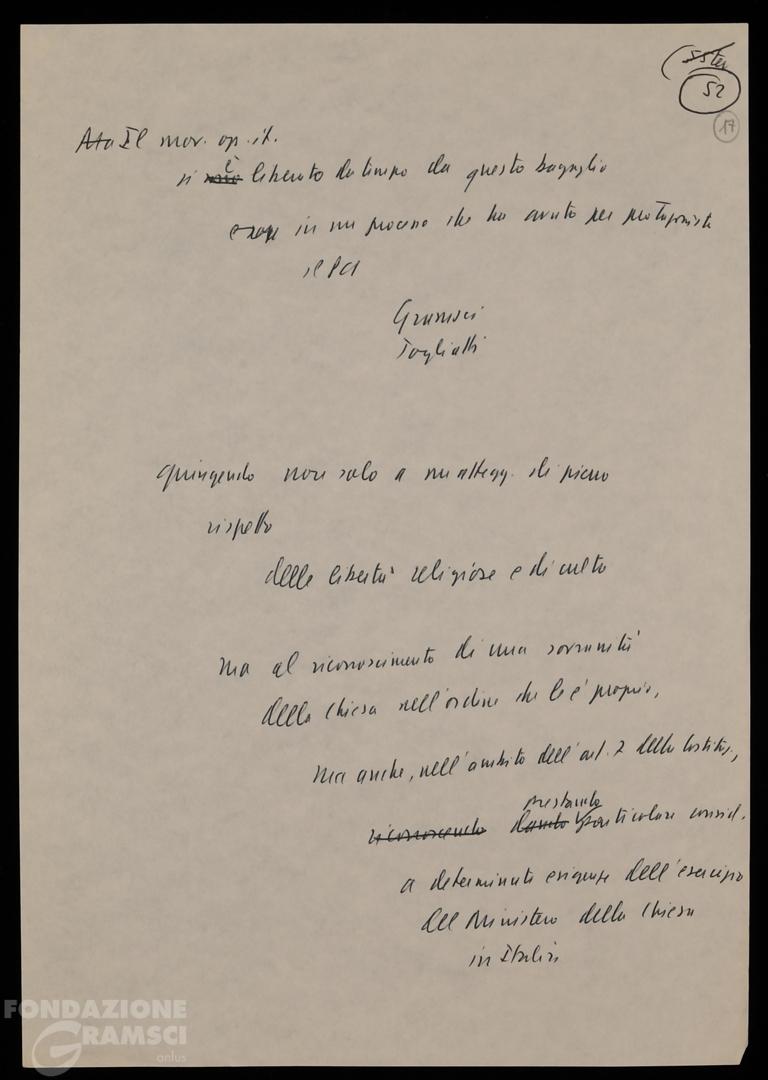 55ter
52
17
Ma Il mov. op. it.
si è liberato da tempo da questo bagaglio
in un processo che ha avuto per protagonista
il PCI
Gramsci
Togliatti
giungendo non solo a un attegg. di pieno
rispetto
delle libertà religiose e di culto
ma al riconoscimento di una sovranità
della Chiesa nell'ordine che le è proprio,
ma anche, nell'ambito dell'art. 7 della Costituz.,
prestando
riconoscendo dando particolare consid.
a determinate esigenze dell'esercizio
del Ministero della Chiesa
in Italia
FONDAZIONE
GRAMSCI
onlus